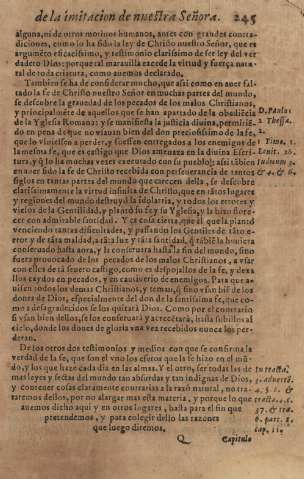 de la imitacion de nuestra Señora. 245
alguna, ni de otros motiuos humanos, antes con grandes contra-
diciones, como lo ha sido la ley de Christo nuestro Señor, que es
argumẽto eficacissimo, y testimonio clarissimo de ser ley del ver
dadero Dios: porque tal marauilla excede la virtud y fuerça natu-
ral de toda criatura, como auemos declarado.
Tambien se ha de considerar mucho, que assi como en auer fal-
tado la fe de Christo nuestro Señor en muchas partes del mundo,
se descubre la grauedad de los pecados de los malos Christianos,
y principalmente de aquellos que se han apartado de la obediẽcia
de la Yglesia Romana: y se manifiesta la justicia diuina, permitiẽ-
do en pena de que no viuian bien del don preciosissimo de la fe,
que lo viniessen a perder, y fuessen entregados a los enemigos de
la mesma fe, que es castigo que Dios amenaza en la diuina Escri-
tura, y q̃ lo ha muchas vezes executado con su pueblo: assi tãbien
en auer sido la fe de Christo recebida con perseuerancia de tantos
siglos en tantas partes del mundo que carecen della, se descubre
clarissimamente la virtud infinita de Christo, que en tãtos lugares
y regiones del mundo destruyó la idolatria, y todos los errores y
vicios de la Gentilidad, y plantó su fe y su Yglesia, y la hizo flore-
cer con admirable santidad. Y es cosa cierta, que el que la plantó
venciendo tantas dificultades, y passando los Gentiles de tãto e-
rror y de tãta maldad, a tãta luz y tãta santidad, q̃ tãbiẽ la huuiera
conseruado hasta aora, y la conseruara hasta la fin del mundo, sino
fuera prouocado de los pecados de los malos Christianos, a vsar
con ellos de tã seuero castigo, como es despojallos de la fe, y dexa
llos caydos en pecados, y en cautiuerio de enemigos. Para que a-
uisen todos los demas Christianos, y teman, q̃ sino vsan biẽ de los
dones de Dios, especialmente del don de la santissima fe, que co-
mo a desagradecidos se los quitará Dios. Como por el contrario
si vsan bien dellos, se los conseruará y acrecẽtará, hasta subirlos al
cielo, donde los dones de gloria vna vez recebidos nunca los per-
deran.
De los otros dos testimonios y medios con que se confirma la
verdad de la fe, que son el vno los efetos que la fe hizo en el mũ-
do, y los que haze cada dia en las almas. Y el otro, ser todas las de
mas leyes y sectas del mundo tan absurdas y tan indignas de Dios,
y contener cosas claramente contrarias a la razõ natural, no tra-
taremos dellos, por no alargar mas esta materia, y porque lo que
auemos dicho aqui y en otros lugares, basta para el fin que
pretendemos, y para colegir dello las razones
que luego diremos.
Q Capitulo
D. Paulus
2 Thessa.
2.
1 Timo. 1.
Leuit. 26.
Iudicum 3.
& 4. & 6.
In tracta.
3. aduertẽ.
4. 5. 1. &
tracta. 4. 5.
37. & tra.
6. part. 2.
cap. 11.